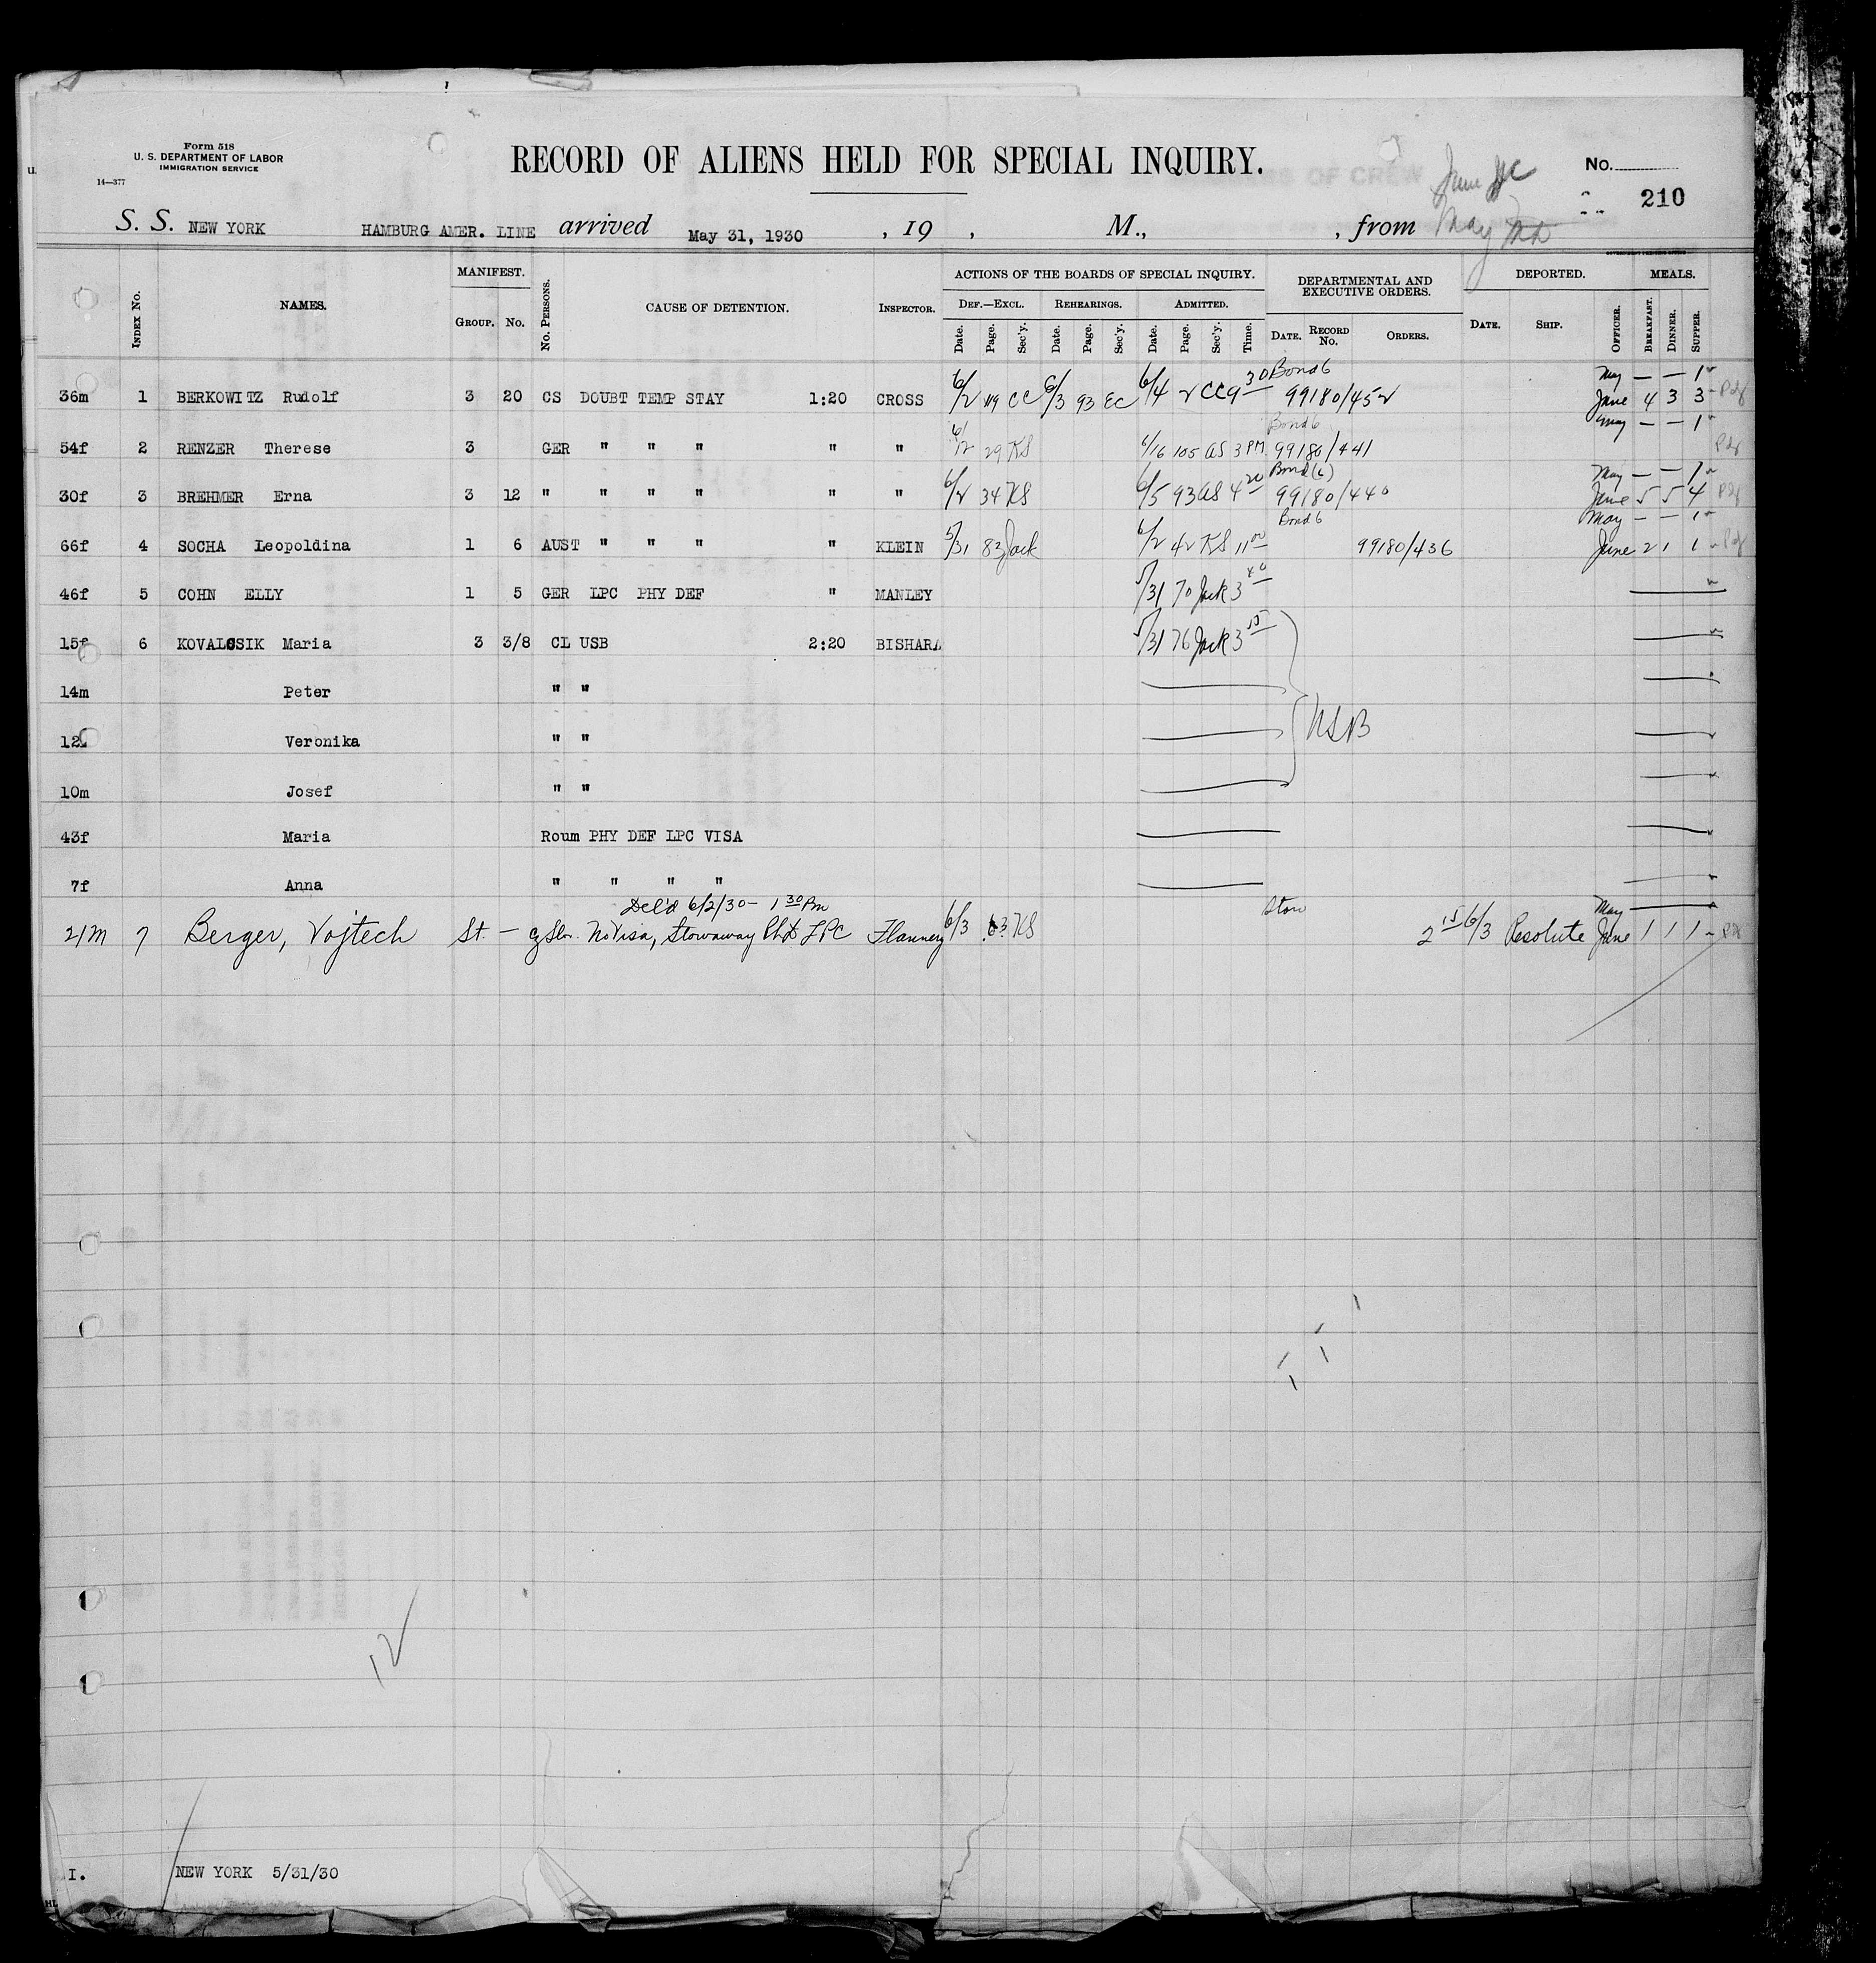 Form 518
U. S. DEPARTMENT OF LABOR
IMMIGRATION SERVICE
14—377
RECORD OF ALIENS HELD FOR SPECIAL INQUIRY.
No.
210
S. S. NEW YORK HAMBURG AMER. LINE arrived May 31, 1930 , 19 , M., , from
INDEX No. NAMES. MANIFEST. GROUP. No. No. PERSONS. CAUSE OF DETENTION. INSPECTOR. ACTIONS OF THE BOARDS OF SPECIAL INQUIRY. DEPARTMENTAL AND EXECUTIVE ORDERS. DEPORTED. MEALS.
DEF.—EXCL. REHEARINGS. ADMITTED.
Date. Page. Sec'y. Date. Page. Sec'y. Date. Page. Sec'y. Time. DATE. RECORD No. ORDERS. DATE. SHIP. OFFICER. BREAKFAST. DINNER. SUPPER.
Bond 6 May — — 1
36m 1 BERKOWITZ Rudolf 3 20 CS DOUBT TEMP STAY 1:20 CROSS 6/2 119 CC 6/3 93 EC 6/4 2 CC 9 30 99180/452 June 4 3 3
Bond 6 May — — 1
54f 2 RENZER Therese 3 GER " " " " " 6/2 29 KS 6/16 105 AS 3 PM 99180/441
Bond (6) May — — 1
30f 3 BREHMER Erna 3 12 " " " " " " 6/2 34 KS 6/5 93 AS 4 20 99180/440 June 5 5 4
Bond 6 May — — 1
66f 4 SOCHA Leopoldina 1 6 AUST " " " " KLEIN 5/31 83 Jack 6/2 42 KS 11 00 99180/436 June 2 1 1
46f 5 COHN ELLY 1 5 GER LPC PHY DEF " MANLEY 5/31 70 Jack 3 40
15f 6 KOVALCSIK Maria 3 3/8 CL USB 2:20 BISHARA 5/31 76 Jack 3 55
14m Peter " "
USB
12 Veronika " "
10m Josef " "
43f Maria Roum PHY DEF LPC VISA
7f Anna " " " "
Del'd 6/2/30 - 1 30 Pm Stow May
21m 7 Berger, Vojtech St. — No Visa, Stowaway LPC Flannery 6/3 63 KS 2 15 6/3 Resolute June 1 1 1
12
I. NEW YORK 5/31/30